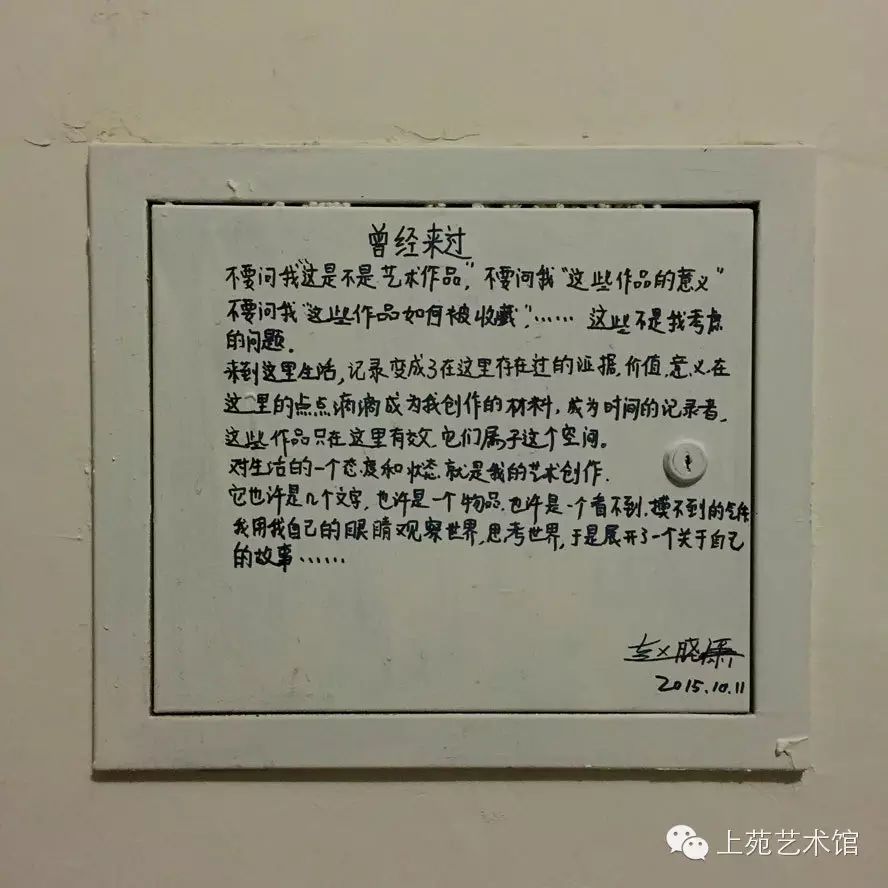 曾经来过
不要问我"这是不是艺术作品",不要问我"这些作品的意义"
不要问我"这些作品如何被收藏",…… 这些不是我考虑
的问题。
来到这里生活,记录变成了在这里存在过的证据,价值,意义,在
这里的点点滴滴成为我创作的材料,成为时间的记录者,
这些作品只在这里有效,它们属于这个空间。
对生活的一个态度和状态,就是我的艺术创作.
它也许是几个文字,也许是一个物品,也许是一个看不到,摸不到的气体
我用我自己的眼睛观察世界,思考世界,于是展开了一个关于自己
的故事……
赵晓
2015.10.11
上苑艺术馆